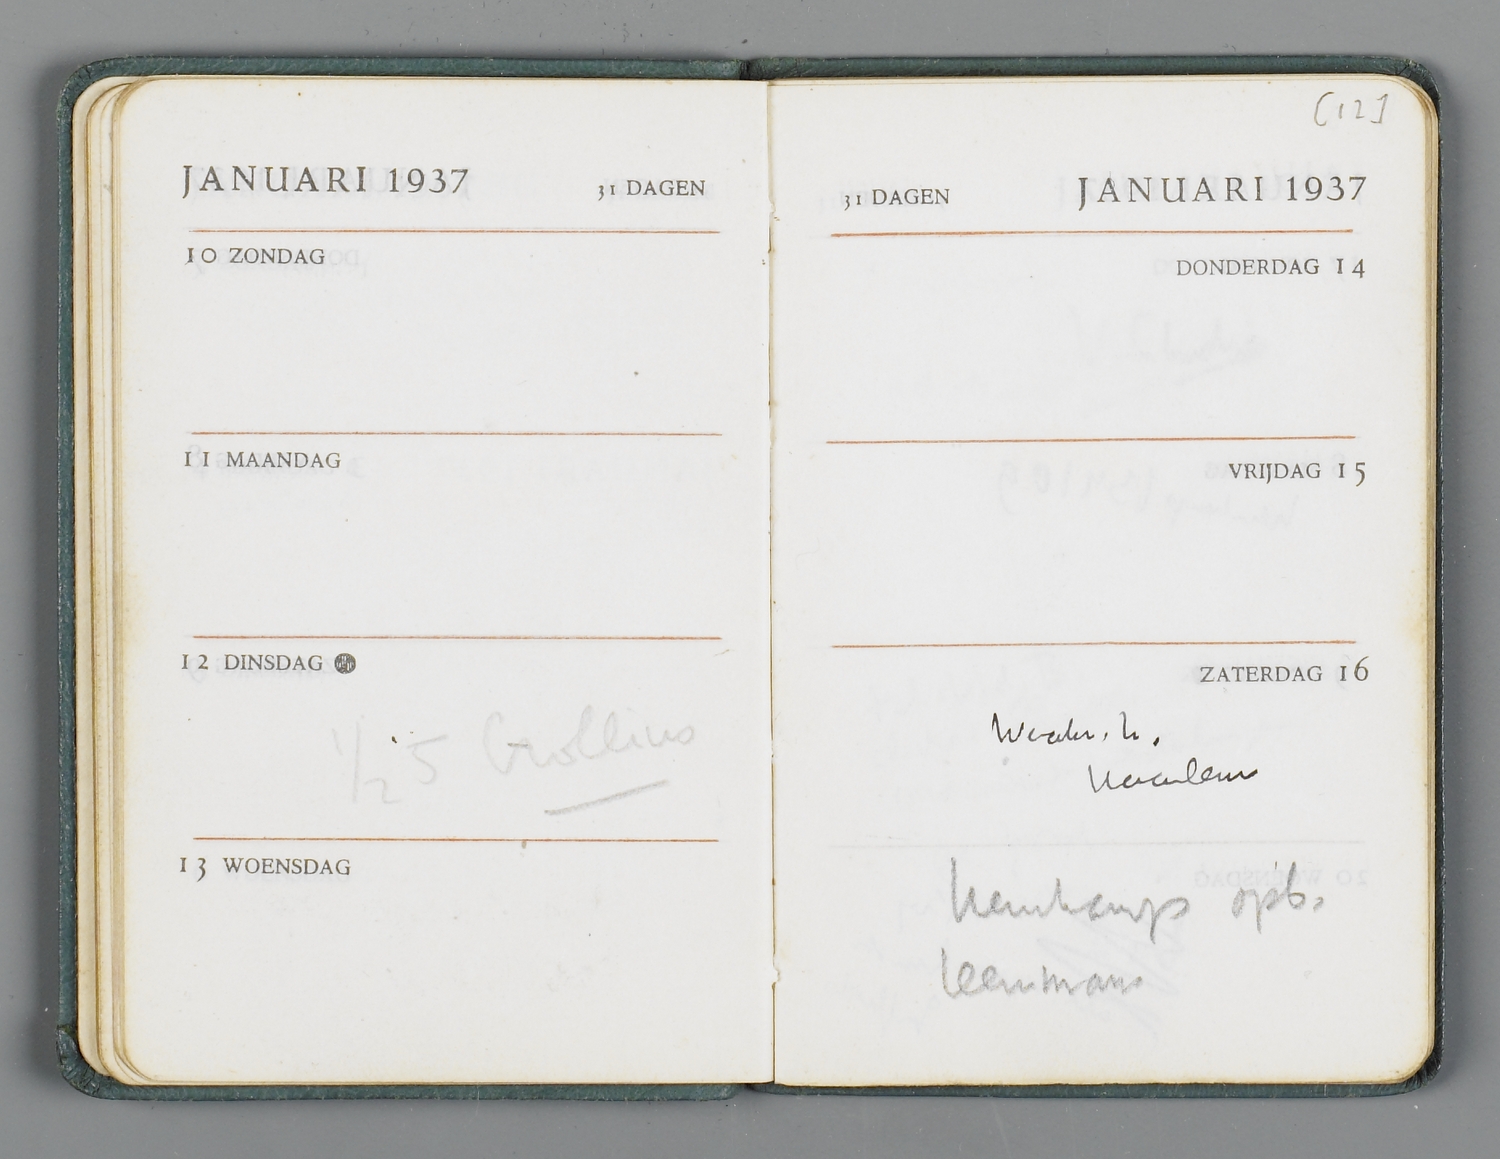 JANUARI 1937 31 DAGEN
10 ZONDAG
11 MAANDAG
12 DINSDAG
1/2 5 Grollius
13 WOENSDAG
[12]
31 DAGEN JANUARI 1937
DONDERDAG 14
VRIJDAG 15
ZATERDAG 16
Haarlem
opb.